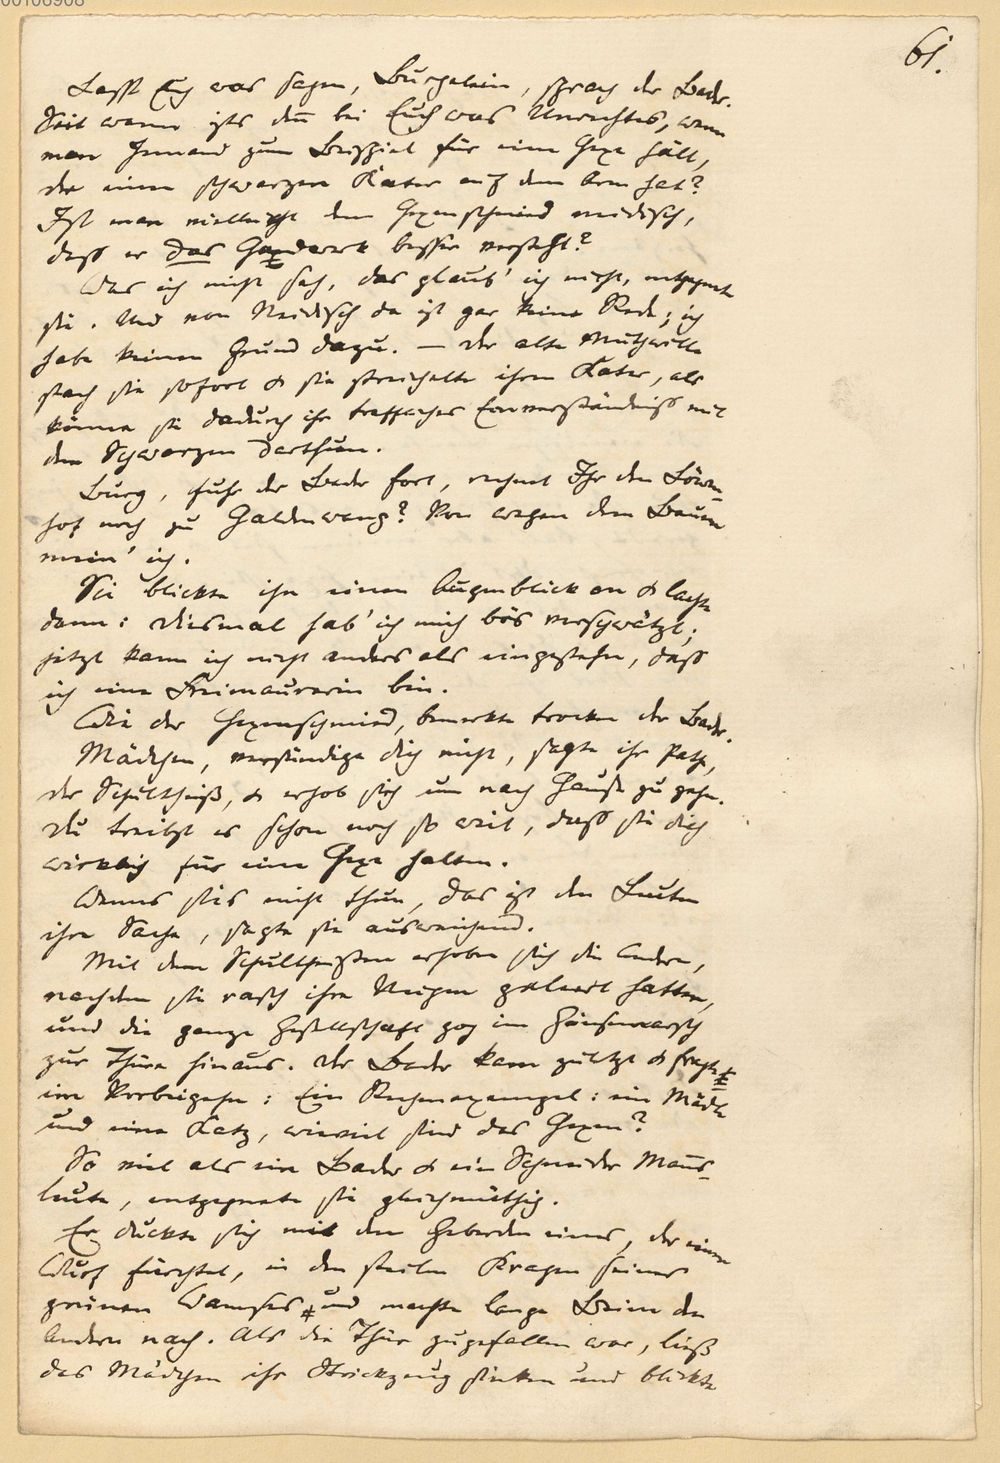 00106908
61.
Lasst Euch was sagen, Burgelein, sprach der Bader.
Seit wann ists denn bei Euch was Unrechtes, wenn
man Jemand zum Beispiel für eine Hexe hält,
der einen schwarzen Kater auf dem Arm hat?
Ist man vielleicht dem Hexenschmied neidisch,
daß er das Handwerk besser versteht?
Was ich nicht seh, das glaub' ich nicht, entgegnete
sie. Und von Neidisch da ist gar keine Rede; ich
habe keinen Grund dazu. — Der alte Muthwille
stach sie sofort & sie streichelte ihren Kater, als
könne sie dadurch ihr treffliches Einverständniß mit
dem Schwarzen darthun.
Burg, fuhr der Bader fort, rechnet Ihr den Löwen-
hof noch zu Haldenwang? Von wegen dem Bauern
mein' ich.
Sie blickte ihn einen Augenblick an & lachte
dann: Diesmal hab' ich mich bös verschwätzt;
jetzt kann ich nicht anders als eingestehn, daß
ich eine Freimaurerin bin.
Wie der Hexenschmied, bemerkte trocken der Bader.
Mädchen, versündige dich nicht, sagte ihr Path,
der Schultheiß, & erhob sich um nach Hause zu gehn.
Du treibst es schon noch so weit, daß sie dich
wirklich für eine Hexe halten.
Wenns sies nicht thun, das ist den Leuten
ihre Sache, sagte sie ausweichend.
Mit dem Schultheißen erhoben sich die Andern,
nachdem sie rasch ihre Neigen geleert hatten,
und die ganze Gesellschaft zog im Gänsemarsch
zur Thüre hinaus. Der Bader kam zuletzt & fragte
im Vorbeigehn: Ein Rechenexempel: ein Mädle
und eine Katz, wieviel sind das Hexen?
So viel als ein Bader & ein Schneider Manns-
leute, entgegnete sie gleichmüthig.
Er duckte sich mit den Geberden eines, der einen
Wurf fürchtet, in den steifen Kragen seines
grünen Wamses und machte lange Beine den
Andern nach. Als die Thür zugefallen war, ließ
das Mädchen ihr Strickzeug sinken und blickte